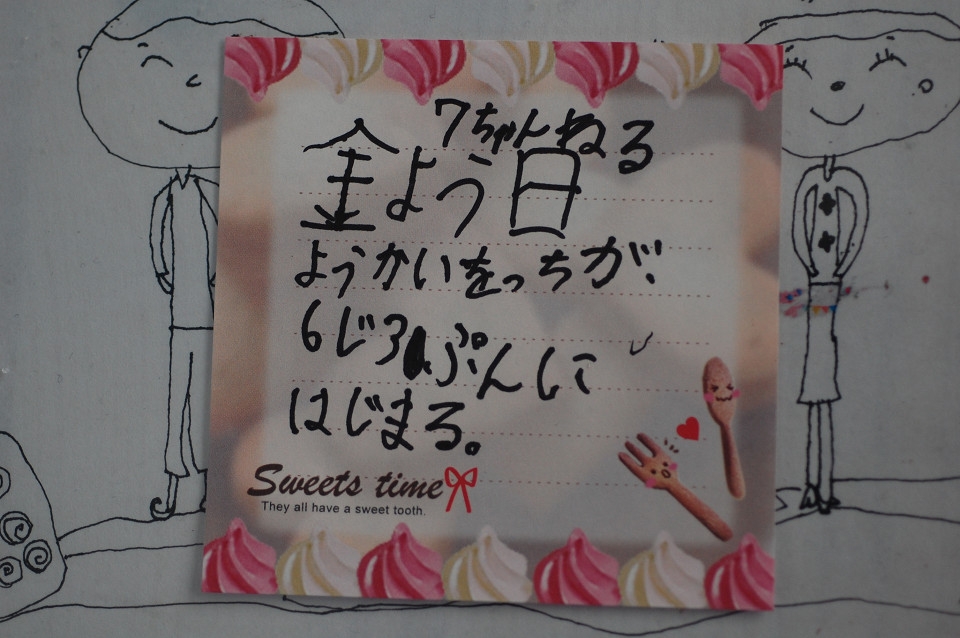 7ちゃんねる
金よう日
ようかいをっちが
6じ3ぷんに
はじまる。
Sweets time
They all have a sweet tooth.